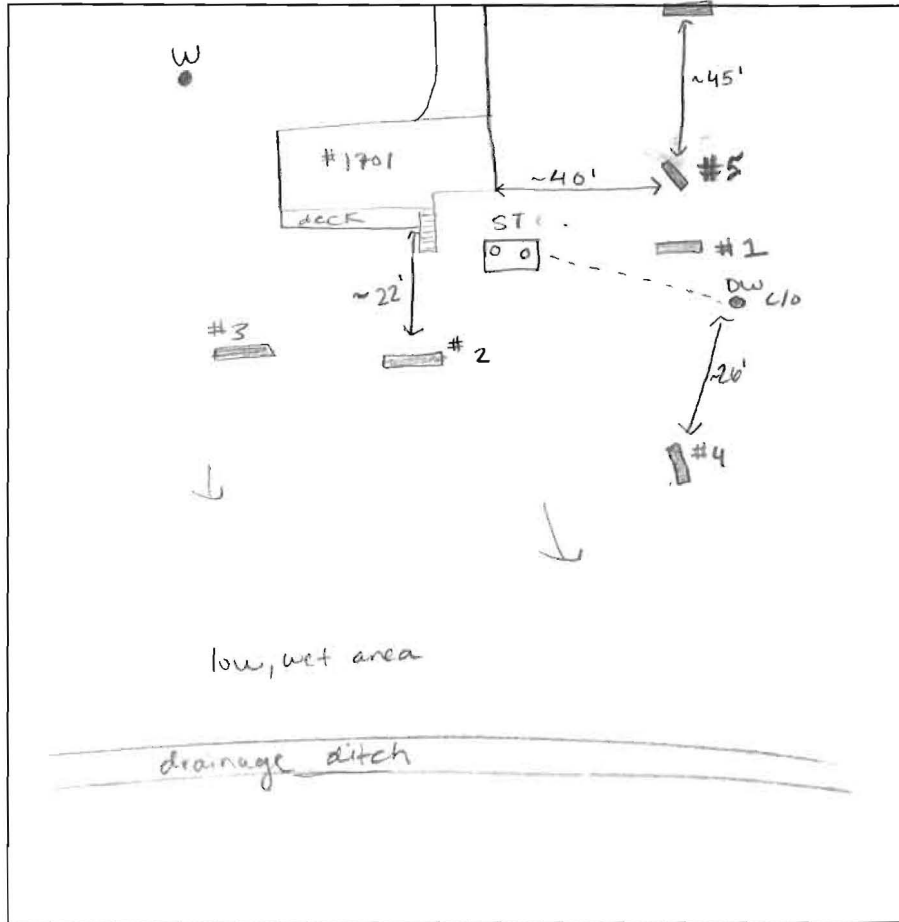 W
~45'
#1701
~40'
#5
deck
ST
#1
DW
c/o
~22'
#3
#2
~26'
#4
low, wet area
drainage ditch